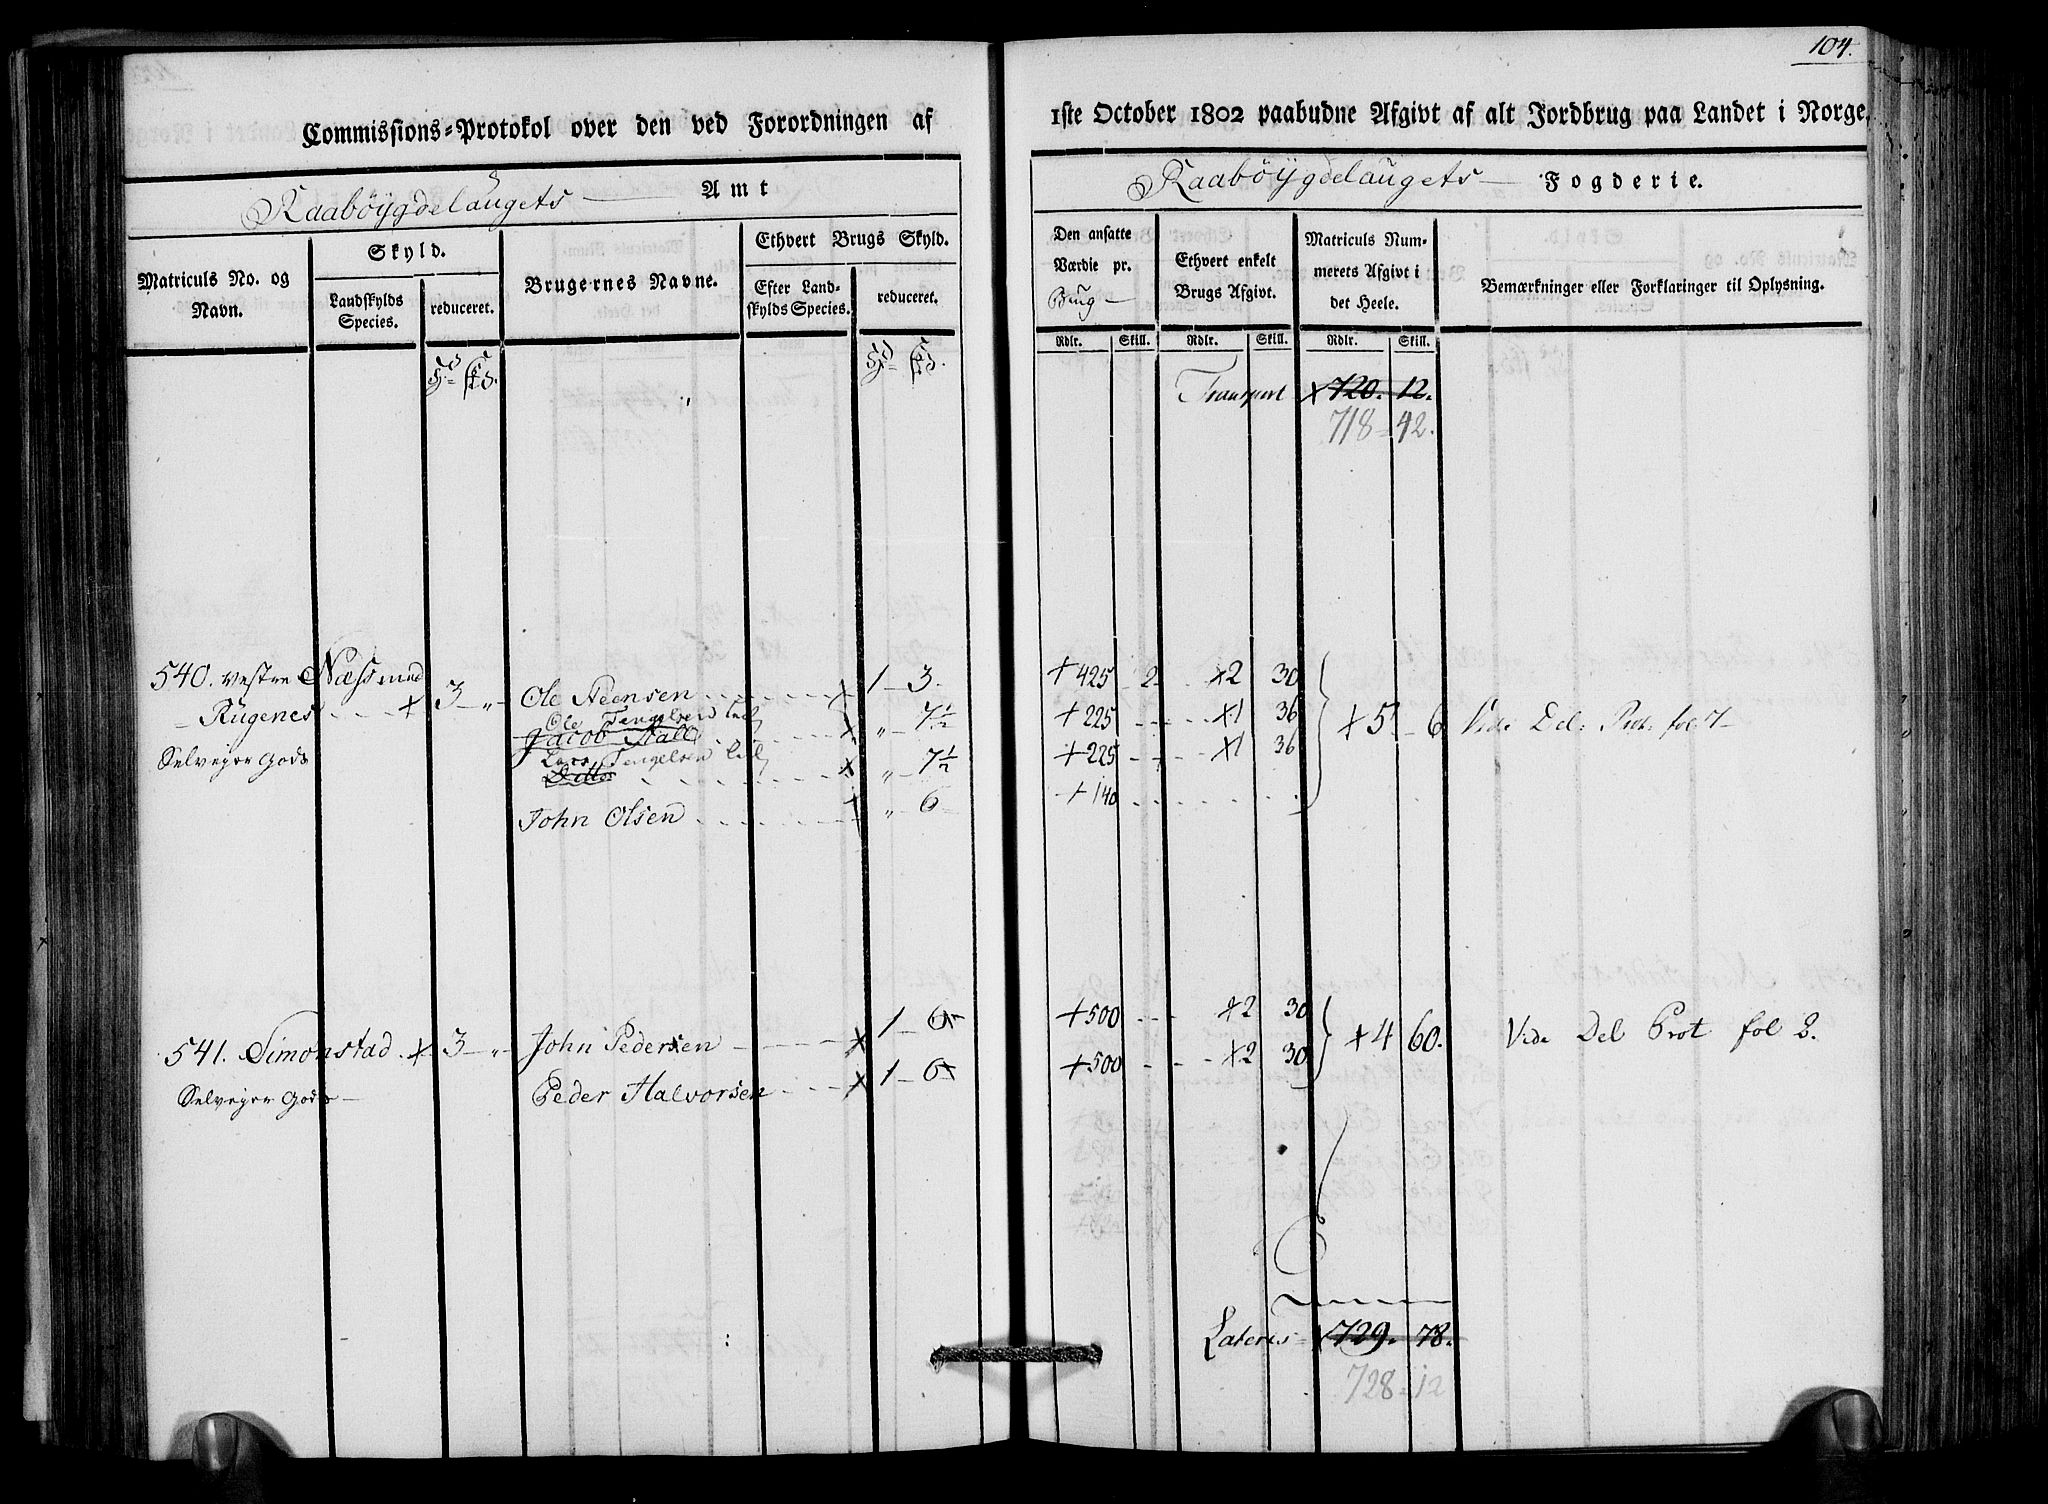 104.
Commissions=Protokol over den ved Forordningen af
1ste October 1802 paabudne Afgivt af alt Jordbrug paa Landet i Norge.
Raaböÿgdelaugets Amt
Raaböÿgdelaugets Fogderie.
Matriculs No. og Navn.
Skyld.
Landskylds Species.
reduceret.
Brugernes Navne.
Ethvert Brugs Skyld.
Efter Landskylds Species.
reduceret.
Den ansatte Værdie pr. Brug
Ethvert enkelt Brugs Afgivt.
Matriculs Nummerets Afgivt i det Heele.
Bemærkninger eller Forklaringer til Oplysning.
Rdlr. Skill. Rdlr. Skill. Rdlr. Skill.
Transport x 720. 12.
718 = 42.
540. vestre Næss med x 3 — „ — Ole Steensen x 1 — 3. + 425 - 2 x2 30
Rügenes
Ole Tengelsen x „ — 7½ + 225 x1 36 x 5 — 6 Vide Del: Prot. fol 7
Jacob Stall
Selveyer Gods
Lars Tengelsen x „ — 7½ + 225 x1 36
Ditto
John Olsen „ — 6 + 140
541. Simonstad. x 3 — „ — John Pedersen x 1 — 6 + 500 x2 30 x 4 60. Vide Del Prot fol 2.
Selveyer Gods — Peder Halvorsen x 1 — 6 + 500 x2 30
Lateris 729. 78.
728 = 12